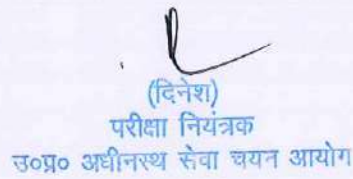 (दिनेश)
परीक्षा नियंत्रक
उ०प्र० अधीनस्थ सेवा चयन आयोग